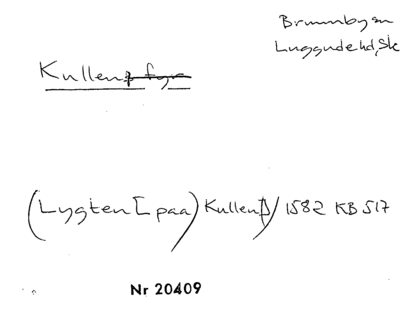 Brunnby sn
Luggude hd, Sk
Kullens fyr
(Lygten [paa) Kullen]) 1582 KB 517
Nr 20409